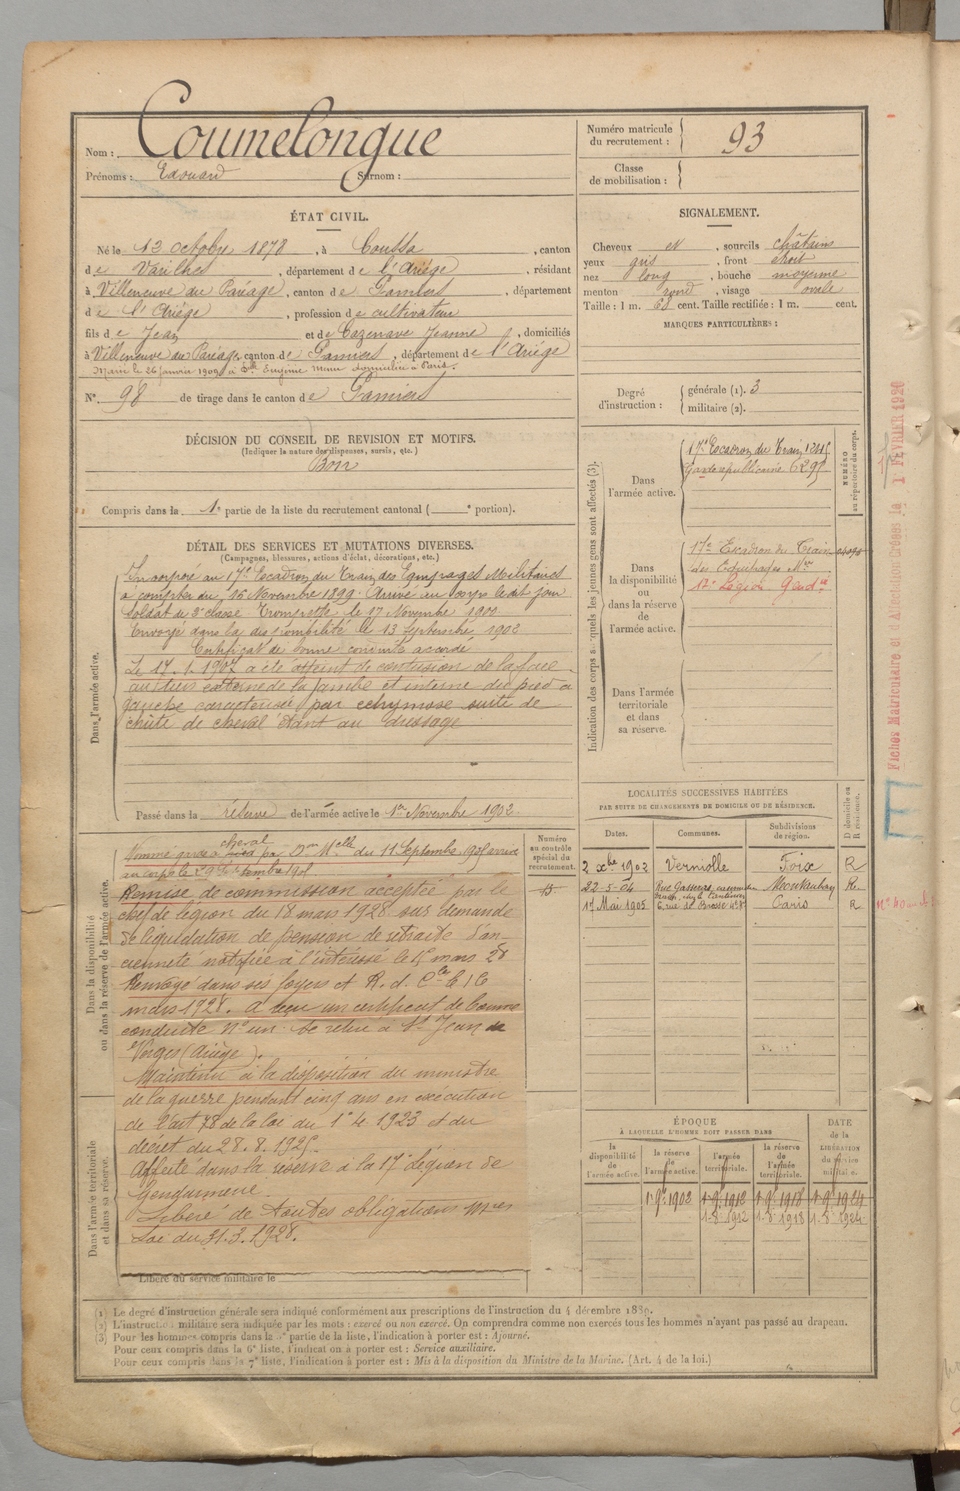 Nom : Coumelongue
Prénoms : Edouard Surnom :
Numéro matricule du recrutement : 93
Classe de mobilisation :
ÉTAT CIVIL.
Né le 12 octobre 1878, à Coussa, canton
de Varilhes, département de l'Ariège, résidant
à Villeneuve du Paréage, canton de Pamiers, département
de l'Ariège, profession de cultivateur
fils de Jean et de Cazenave Jeanne, domiciliés
à Villeneuve du Paréage, canton de Pamiers, département de l'Ariège
Marié le 26 janvier 1909 à Elle Eugénie domiciliée à Paris.
N° 98 de tirage dans le canton de Pamiers
SIGNALEMENT.
Cheveux et, sourcils châtains
yeux gris, front étroit
nez long, bouche moyenne
menton rond, visage ovale
Taille : 1 m. 68 cent. Taille rectifiée : 1 m. cent.
MARQUES PARTICULIÈRES :
Degré d'instruction : générale (1). 3
militaire (2).
DÉCISION DU CONSEIL DE REVISION ET MOTIFS.
(Indiquer la nature des dispenses, sursis, etc.)
Bon
Compris dans la 1e partie de la liste du recrutement cantonal ( e portion).
DÉTAIL DES SERVICES ET MUTATIONS DIVERSES.
(Campagnes, blessures, actions d'éclat, décorations, etc.)
Dans l'armée active.
Incorporé au 17e Escadron du Train des Equipages Militaires
à compter du 16 Novembre 1899. Arrivé au corps le dit jour
soldat de 2e classe Trompette le 17 Novembre 1900
Envoyé dans la disponibilité le 13 Septembre 1902
Certificat de bonne conduite accordé
Le 17.1.1907 a été atteint de contusion de la face
externe de la jambe et interne du pied
gauche caractérisée par ecchymose suite de
chute de cheval étant au dressage
Passé dans la réserve de l'armée active le 1er Novembre 1902
Dans la disponibilité ou dans la réserve de l'armée active.
Nommé garde à cheval par Don Melle du 11 Septembre 1905 arrivé
au corps le 29 Septembre 1905
Remise de commission acceptée par le
chef de légion du 18 mars 1928 sur demande
de liquidation de pension de retraite d'an-
cienneté notifiée à l'intéressé le
Renvoyé dans ses foyers et R. d. C. le 16
mars 1928. A reçu un certificat de bonne
conduite n° un. Se retire à St Jean de
Verges (Ariège).
Maintenu à la disposition du ministre
de la guerre pendant cinq ans en exécution
de l'art 78 de la loi du 1.4.1923 et du
décret du 28.8.1925.
Affecté dans la réserve à la 17e légion de
Gendarmerie.
Libéré de toutes obligations mres
Loi du 31.3.1928.
Dans l'armée territoriale et dans sa réserve.
Libéré du service militaire le
Numéro au contrôle spécial du recrutement.
Indication des corps auxquels les jeunes gens sont affectés (3).
NUMÉRO au répertoire du corps.
Dans l'armée active.
17e Escadron du Train 1245
Garde républicaine 6295
Dans la disponibilité ou dans la réserve de l'armée active.
17e Escadron du Train
des Equipages Mres
17e Légion Gendie
Dans l'armée territoriale et dans sa réserve.
LOCALITÉS SUCCESSIVES HABITÉES
PAR SUITE DE CHANGEMENTS DE DOMICILE OU DE RÉSIDENCE.
Dates. Communes. Subdivisions de région. D domicile ou R résidence.
2 xbre 1902 Verniolle Foix R
22-5-04 Montauban R.
17 Mai 1905 Paris R
ÉPOQUE
À LAQUELLE L'HOMME DOIT PASSER DANS
la disponibilité de l'armée active. la réserve de l'armée active. l'armée territoriale. la réserve de l'armée territoriale. DATE de la LIBÉRATION du service militaire.
1-9bre 1902 1-9 1912 1-9 1918 1-9 1924
1-8 1912 1-8 1918 1-8 1924
Fiches Matriculaire et d'Affectation créées le 1 FEVRIER 1920
(1) Le degré d'instruction générale sera indiqué conformément aux prescriptions de l'instruction du 4 décembre 1889.
(2) L'instruction militaire sera indiquée par les mots : exercé ou non exercé. On comprendra comme non exercés tous les hommes n'ayant pas passé au drapeau.
(3) Pour les hommes compris dans la 5e partie de la liste, l'indication à porter est : Ajourné.
Pour ceux compris dans la 6e liste, l'indication à porter est : Service auxiliaire.
Pour ceux compris dans la 7e liste, l'indication à porter est : Mis à la disposition du Ministre de la Marine. (Art. 4 de la loi.)